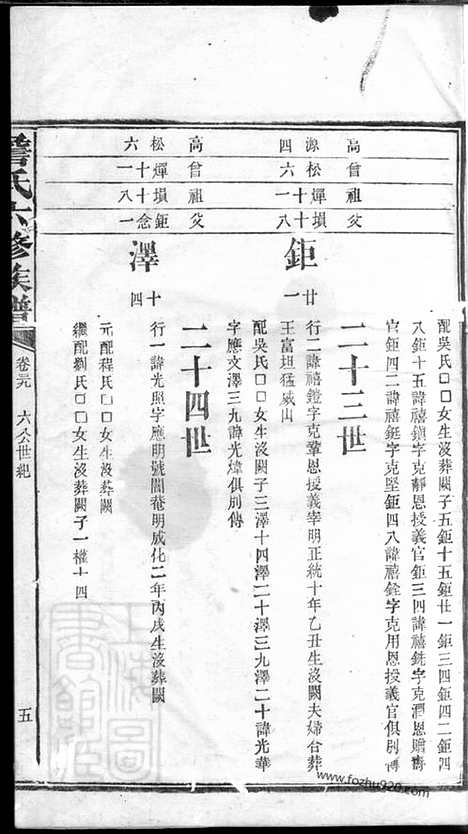 配吳氏□□女生沒闕子五鉅十五鉅廿一鉅三四鉅四二鉅四
八鉅十五諱禧鎮字克靜恩授義官鉅三四諱禧銑字克潤恩贍壽
官鉅四二諱禧鋌字克堅鉅四八諱禧銓字克用恩授義官俱別傳
二十三世
高曾祖父
源松燀塤
四六十十
一八
鉅
廿一
行二諱禧鎧字克鞏恩授義宰明正統十年乙丑生沒闕夫婦合葬
王富坦猛虎山
配吳氏□□女生沒闕子三澤十四澤二十澤三九澤二十諱光華
字應文澤三九諱光煒俱別傳
二十四世
高曾祖父
松燀塤鉅
六十十念
一八一
澤
十四
行一諱光照字應明號閬菴明成化二年丙戌生沒葬闕
元配程氏□□女生沒葬闕
繼配劉氏□□女生沒葬闕子一權十四
詹氏六修族譜
卷三九
六公世紀
五
上海圖書館藏
www.fozhu920.com